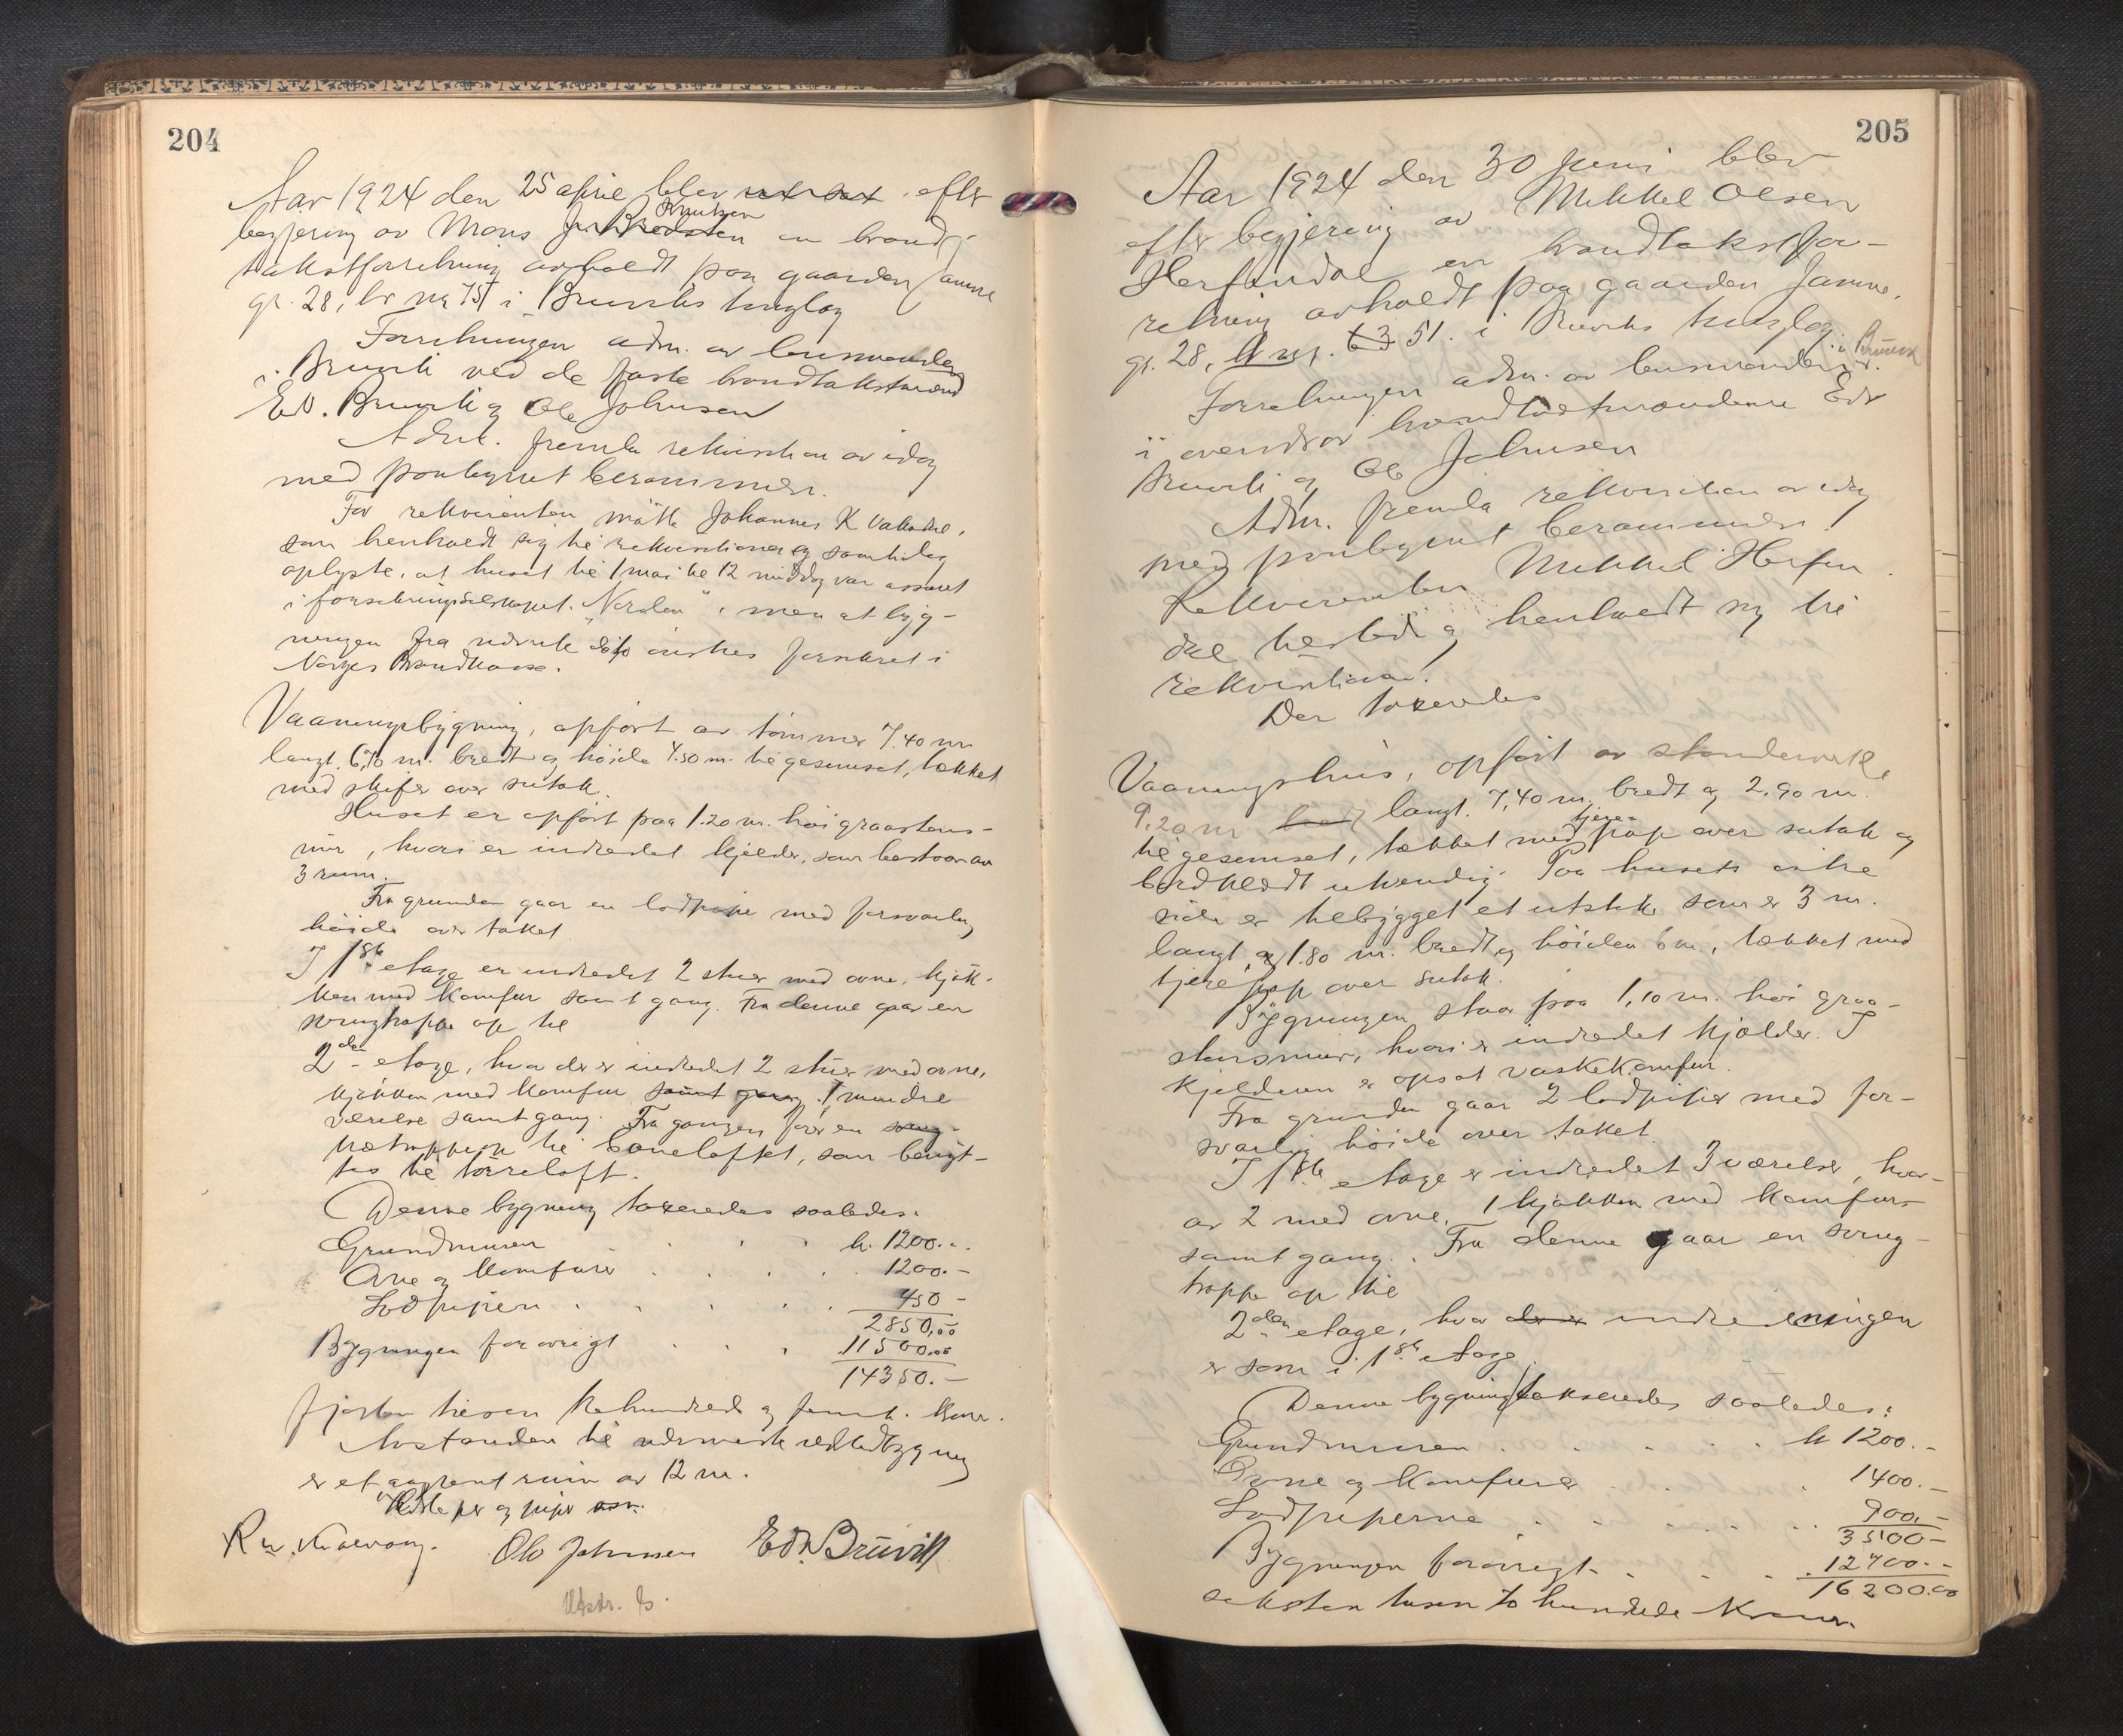 204
Aar 1924 den 25 april blev efter
Knutzen
begjæring av Mons en brand-
takstforretning avholdt paa gaarden Jamne
gr. 28, br nr 75 i Bruviks tinglag
Forretningen adm. av lensmanden
i Bruvik ved de faste brandtakstmænd
Ed. Bruvik og Ole Johnsen
Adm. fremla rekvisition av idag
med paategnet berammelse.
For rekvirenten møtte Johannes K
som henholdt sig til rekvisitionen og samtidig
oplyste, at huset til 1 mai kl 12 middag var assuret
i forsikringsselskapet "Norden", men at byg-
ningen fra nævnte dato ønskes forsikret i
Norges Brandkasse.
Vaaningsbygning, opført av tømmer 7.40 m
langt, m. bredt og høide 4.50 m. til gesemset, tækket
med skifer over sutak.
Huset er opført paa 1.20 m. høi graastens-
mur, hvori er indredet kjelder, som bestaar av
3 rum.
Fra grunden gaar en lodpipe med forsvarlig
høide over taket
I 1ste etage er indredet 2 stuer med ovne, kjøk-
ken med komfur samt gang. Fra denne gaar en
svingtrappe op til
2den etage, hvor der er indredet 2 stuer med ovne,
kjøkken med komfur samt gang, 1 mindre
værelse samt gang. Fra gangen fører en sving-
til loftet, som benyt-
tes til tørreloft.
Denne bygning taxeredes saaledes:
Grundmuren . . . kr. 1200.-
Ovne og komfurer . . . . 1200.-
Lodpipen . . . . 450 -
2850,00
Bygningen forøvrigt . . . 11500.00
14350.-
fjorten tusen trehundrede og femti kroner.
Avstanden til nærmeste nabobygning
er et aapent rum av 12 m.
og piper
Ole Johnsen Edv. Bruvik
Utskr. b.
205
Aar 1924 den 30 juni blev
efter begjæring av Mikkel Olsen
Herfindal en brandtakstfor-
retning avholdt paa gaarden Jamne,
gr. 28, br nr. 63 51. i Bruviks tinglag.
Forretningen adm. av lensmanden i Bruvik
i overvær av brandtakstmændene Edv
Bruvik og Ole Johnsen
Adm. fremla rekvisition av idag
med paategnet berammelse!
Rekvirenten Mikkel Herfin-
dal og henholdt sig til
rekvisitionen!
Der taxeredes
Vaaningshus, opført av stenderverk,
9,20 m bred langt. 7,40 m. bredt og 2,90 m.
tjære
til gesemset, tækket med pap over sutak og
bordklædt utvendig. Paa husets østre
side er tilbygget et utstikk som er 3 m.
langt, og 1.80 m. bredt, og høiden 6 m., tækket med
tjærepap over sutak.
Bygningen staar paa 1,10 m. høi graa-
stensmur, hvori er indredet kjælder. I
kjelderen er opsat vaskekomfur.
Fra grunden gaar 2 lodpiper med for-
svarlig høide over taket.
I 1ste etage er indredet 3 værelser, hvor-
av 2 med ovne, 1 kjøkken med komfur
samt gang. Fra denne gaar en sving-
trappe op til
2den etage, hvor der er indredningen
er som i 1ste etage.
Denne bygning takseredes saaledes:
Grundmuren . . . . . kr 1200.-
Ovne og komfurer . . . . 1400.-
Lodpiperne . . . . . 900.-
3500-
Bygningen forøvrigt . . . . 12700.-
16200.00
seksten tusen to hundrede Kroner